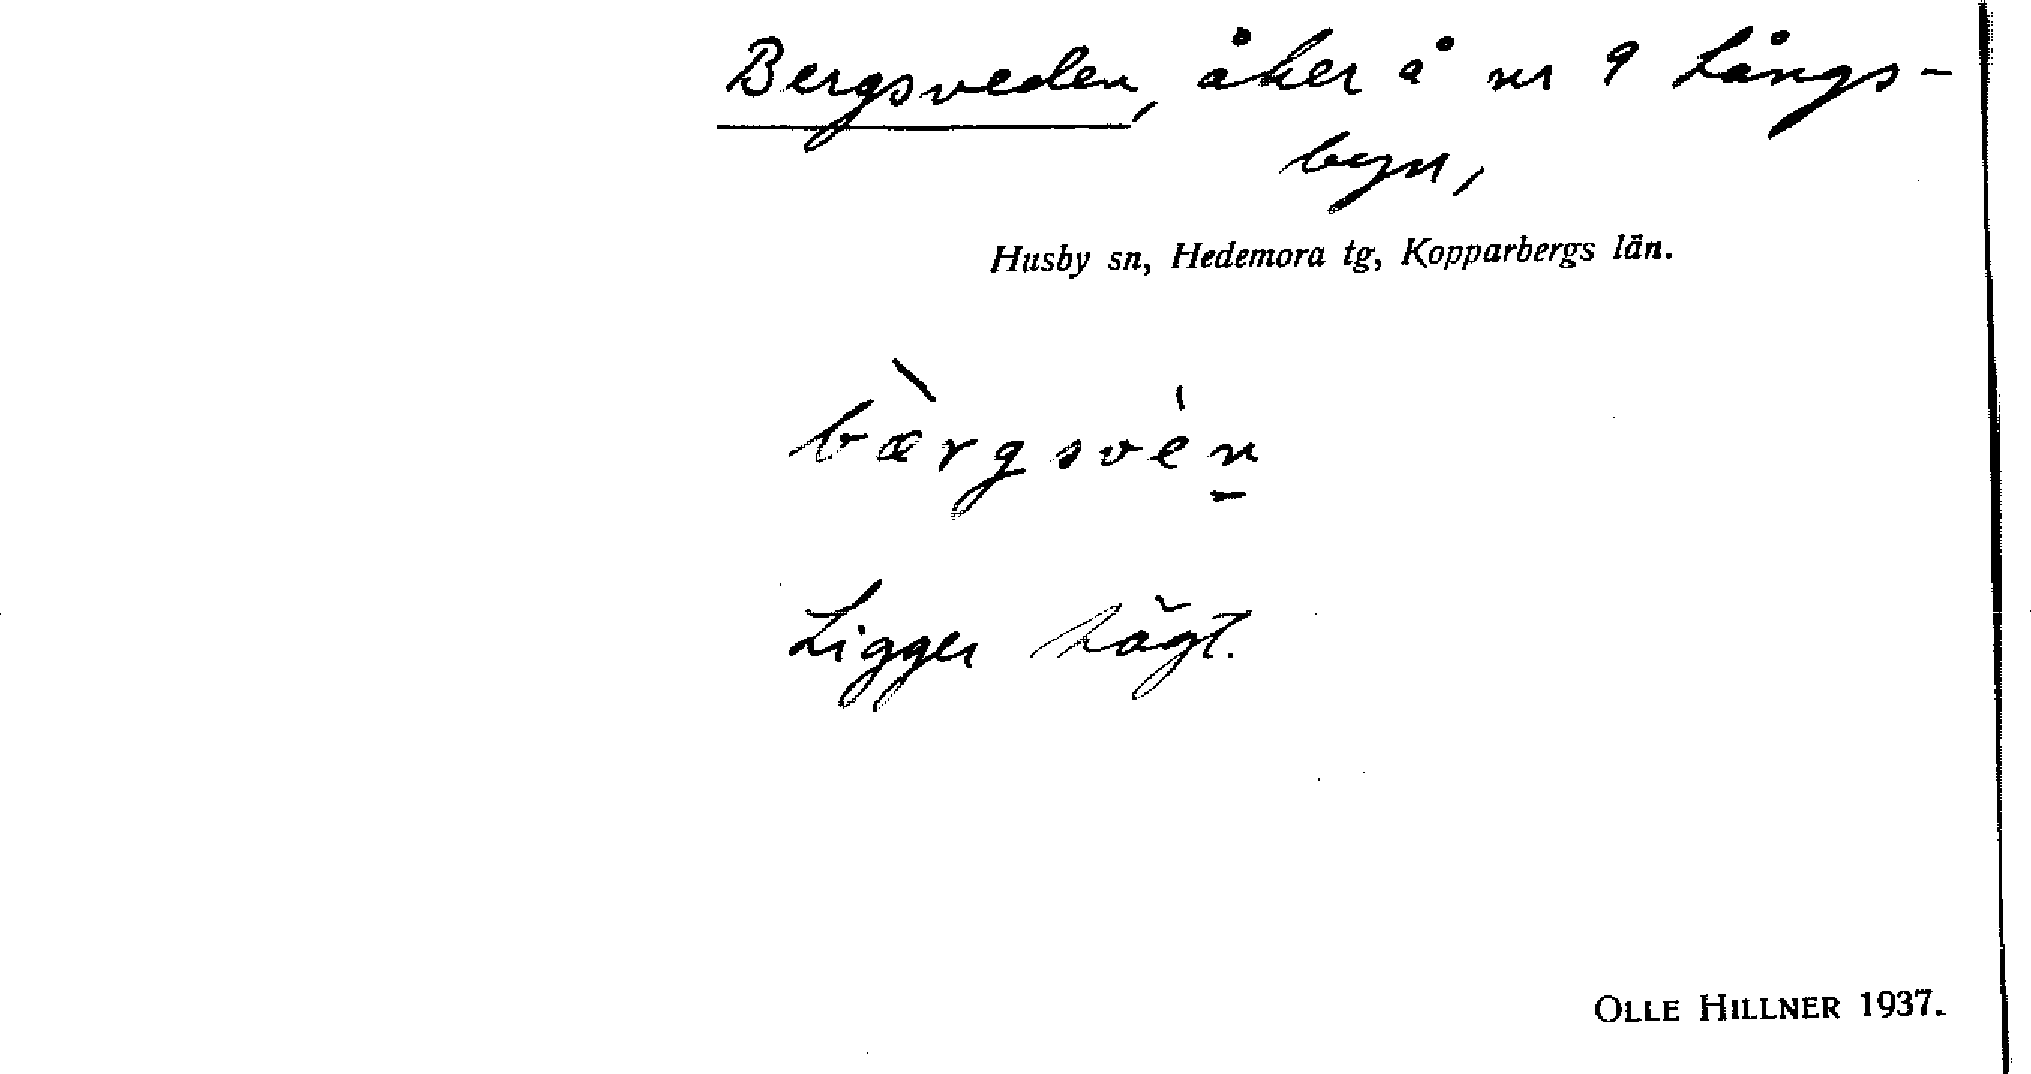 Bergsveden, åker å nr 9 Långs-
byn,
Husby sn, Hedemora tg, Kopparbergs län.
bæ̀rgsvén̲
Ligger högt.
OLLE HILLNER 1937.